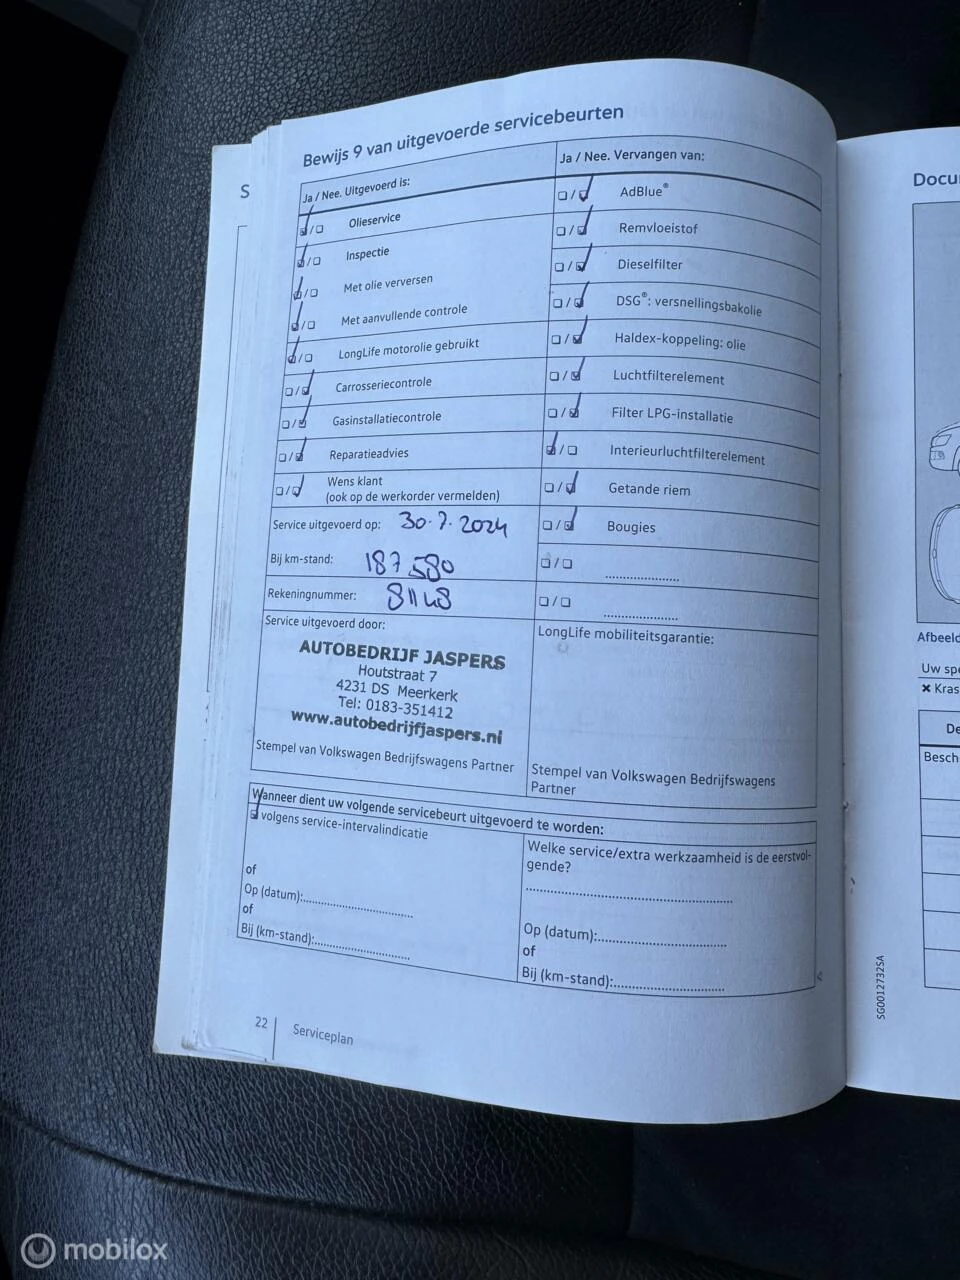 Bewijs 9 van uitgevoerde servicebeurten
Ja / Nee. Uitgevoerd is:
Olieservice
Inspectie
Met olie verversen
Met aanvullende controle
LongLife motorolie gebruikt
Carrosseriecontrole
Gasinstallatiecontrole
Reparatieadvies
Wens klant
(ook op de werkorder vermelden)
Service uitgevoerd op: 30.7.2024
Bij km-stand: 187 580
Rekeningnummer: 81148
Service uitgevoerd door:
AUTOBEDRIJF JASPERS
Houtstraat 7
4231 DS Meerkerk
Tel: 0183-351412
www.autobedrijfjaspers.nl
Stempel van Volkswagen Bedrijfswagens Partner
Ja / Nee. Vervangen van:
AdBlue®
Remvloeistof
Dieselfilter
DSG®: versnellingsbakolie
Haldex-koppeling: olie
Luchtfilterelement
Filter LPG-installatie
Interieurluchtfilterelement
Getande riem
Bougies
LongLife mobiliteitsgarantie:
Stempel van Volkswagen Bedrijfswagens
Partner
Wanneer dient uw volgende servicebeurt uitgevoerd te worden:
volgens service-intervalindicatie
of
Op (datum):
of
Bij (km-stand):
Welke service/extra werkzaamheid is de eerstvol-
gende?
Op (datum):
of
Bij (km-stand):
22 Serviceplan
S
Docu
SG0012732SA
Afbeeld
Uw spe
× Kras
De
Besch
mobilox